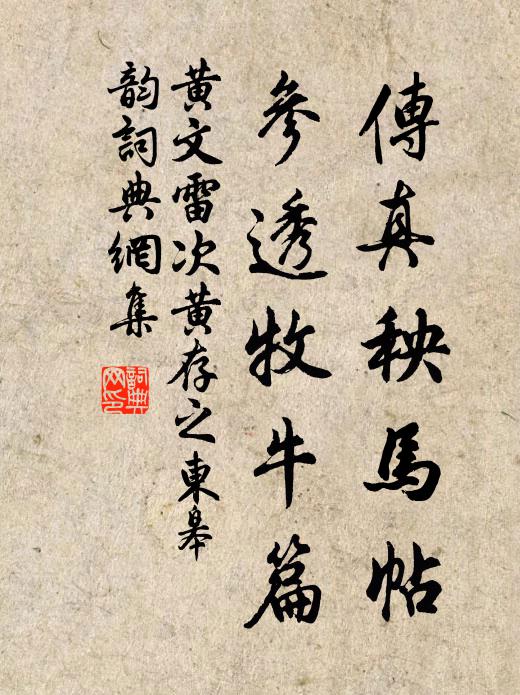 傳真秧馬帖
參透牧牛篇
黃文雷次黃存之東皋
韵詞典網集
詞典
网印